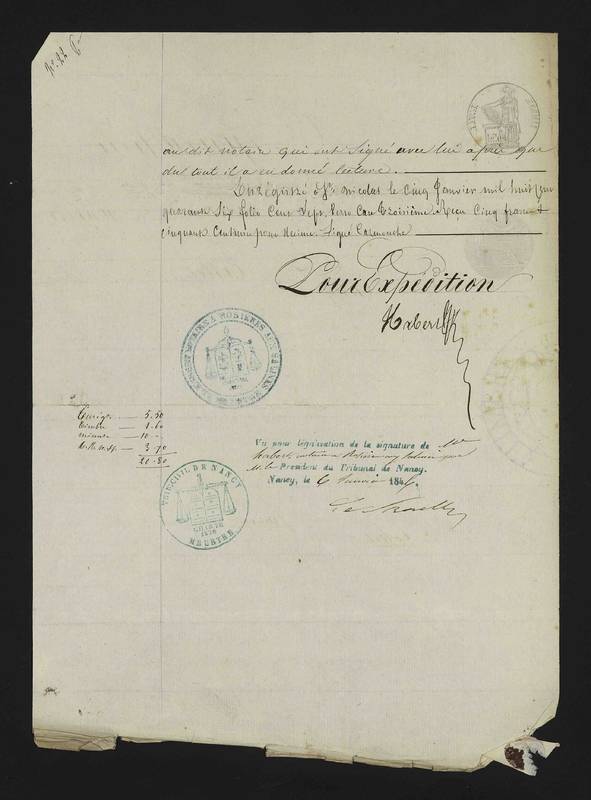 Nº 22
au dit notaire qui ont signé avec lui après que
du tout il a eu donné lecture.
Enregistré à St. Nicolas le cinq Janvier mil huit cent
quarante six folio cent sept, verso case troisième. Reçu cinq francs &
cinquante centimes pour décime. Signé
Pour Expédition
Habert
Enregt — 5.50
Timbre — 1.60
minute — 10 —
3.70
20.80
Vu pour légalisation de la signature de Me
Habert, notaire à Rosières aux Salines par
M. le Président du Tribunal de Nancy.
Nancy, le 6 Janvier 1846.
TRIB. CIVIL DE NANCY
CHARTE
1830
MEURTHE